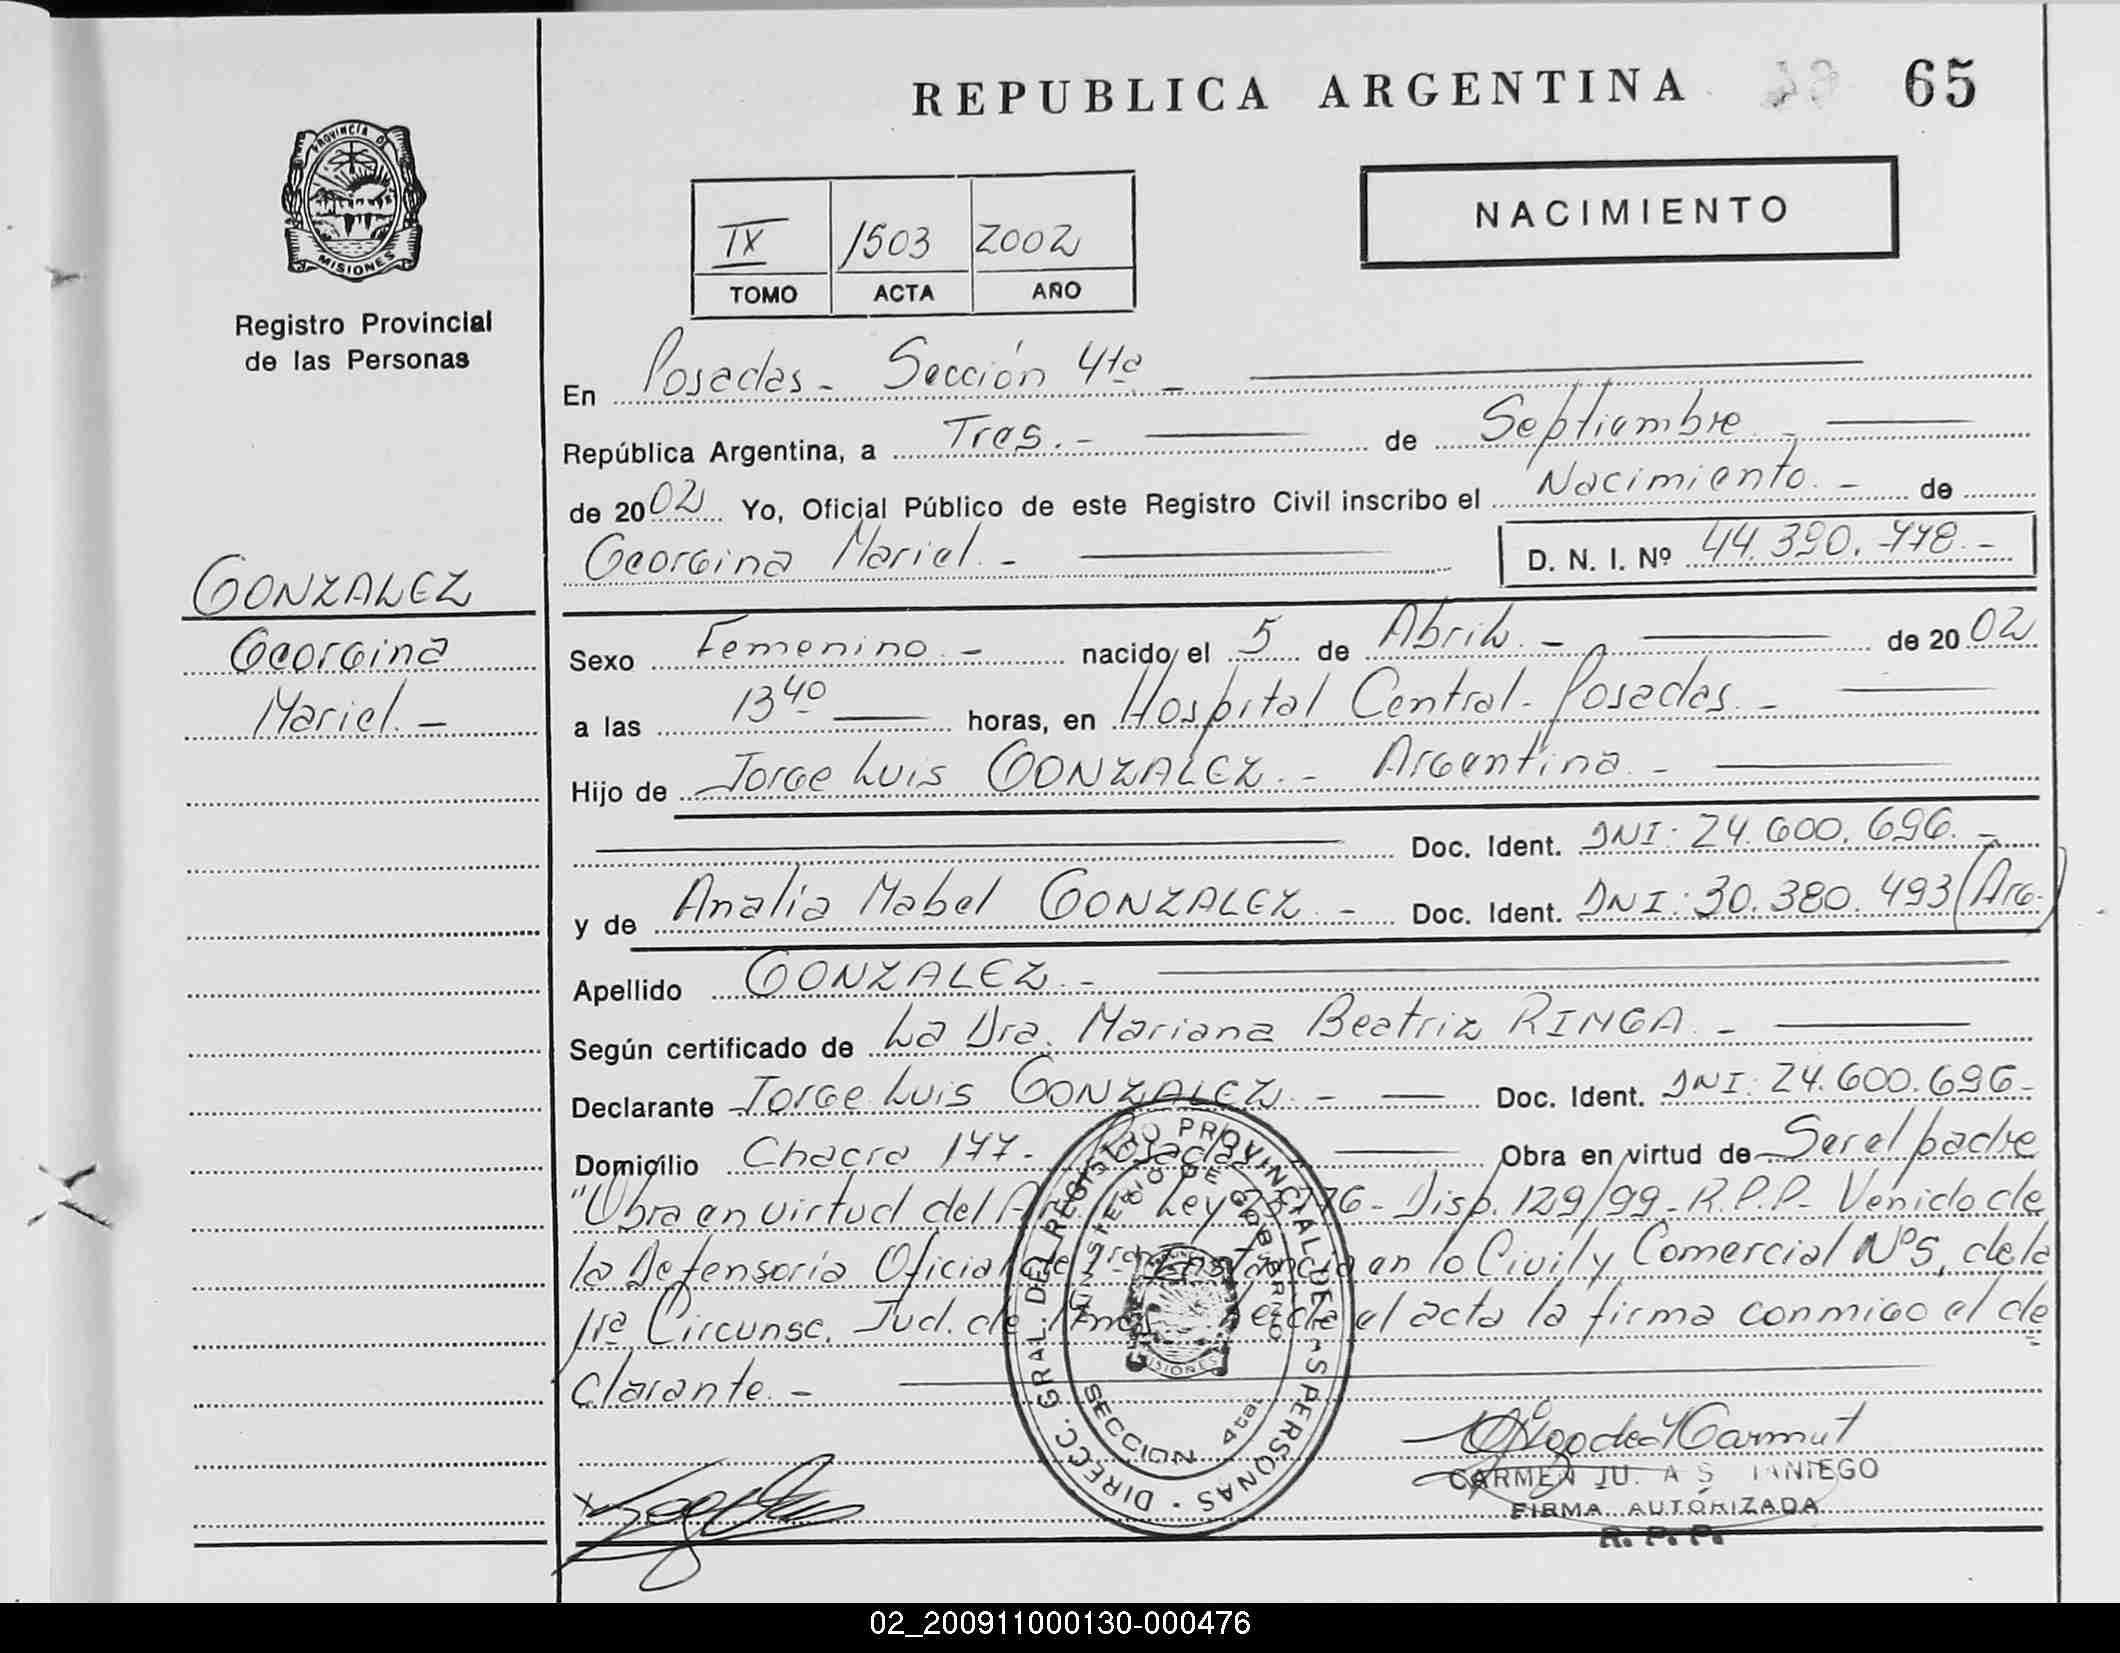 REPUBLICA ARGENTINA 65
PROVINCIA DE
MISIONES
Registro Provincial
de las Personas
NACIMIENTO
IX 1503 2002
TOMO ACTA AÑO
En Posadas - Sección 4ta -
República Argentina, a Tres. - de Septiembre -
de 2002 Yo, Oficial Público de este Registro Civil inscribo el Nacimiento. - de
Georgina Mariel. - D. N. I. Nº 44.390.778. -
GONZALEZ
Georgina
Mariel. -
Sexo Femenino. - nacido el 5 de Abril. - de 2002
a las 13 40 horas, en Hospital Central - Posadas. -
Hijo de Jorge Luis GONZALEZ. - Argentina. -
Doc. Ident. DNI: 24.600.696. -
y de Analia Mabel GONZALEZ. - Doc. Ident. DNI: 30.380.493 (Arg.)
Apellido GONZALEZ. -
Según certificado de La Dra. Mariana Beatriz RINGA. -
Declarante Jorge Luis GONZALEZ. - Doc. Ident. DNI: 24.600.696 -
Domicilio Chacra 177. - Posadas Obra en virtud de Ser el padre
"Obra en virtud del Ley 23776 - Disp. 129/99 - R.P.P. - Venido de
la Defensoría Oficial de 1ra Instancia en lo Civil y Comercial Nº 5, de la
1ra Circunsc. Jud. de el acta la firma conmigo el de
clarante. -
DIRECC. GRAL. DEL REGISTRO PROVINCIAL DE LAS PERSONAS
MINISTERIO DE GOBIERNO
MISIONES
SECCION 4ta.
CARMEN
FIRMA AUTORIZADA
R. P. P.
02_200911000130-000476